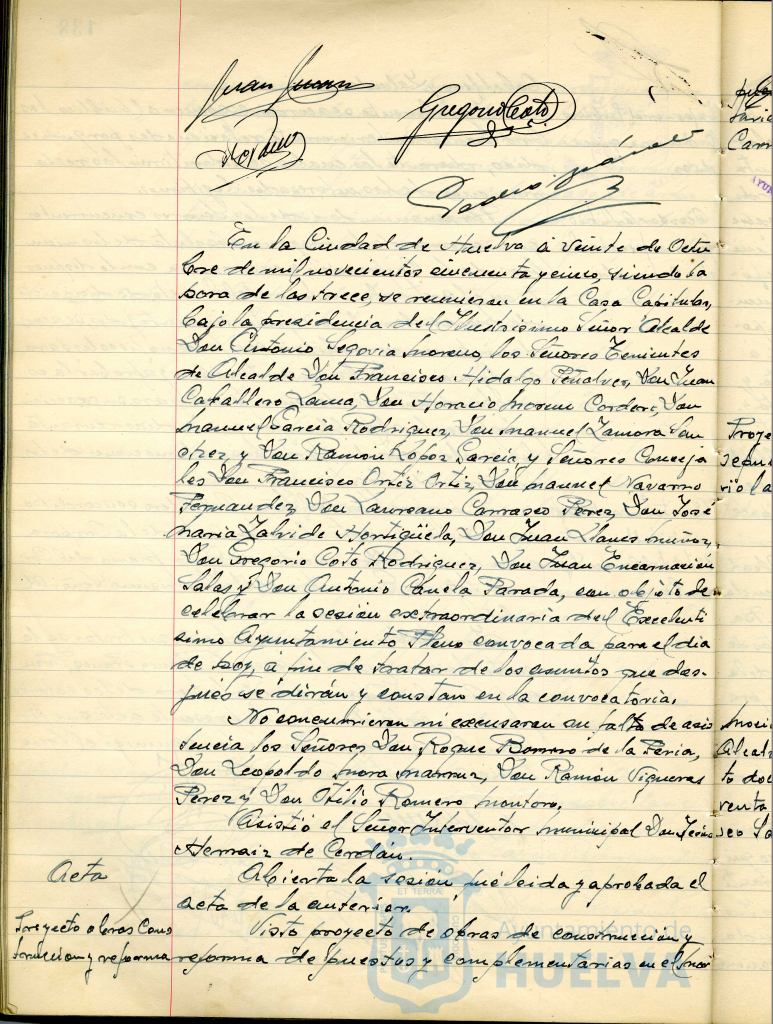 Gregorio Coto
En la Ciudad de Huelva a veinte de Octu
bre de mil novecientos cincuenta y cinco, siendo la
hora de las trece, se reunieron en la Casa Capitular,
bajo la presidencia del Ilustrisimo Señor Alcalde
Don Antonio Segovia Moreno, los Señores Tenientes
de Alcalde Don Francisco Hidalgo Peñalver, Don Juan
Caballero Don Horacio Moreno Cordero, Don
Manuel Garcia Rodriguez, Don Manuel Zamora San
chez, y Don Ramon Lopez Garcia, y Señores Conceja
les Don Francisco Ortiz Ortiz, Don Manuel Navarro
Fernandez, Don Laureano Carrasco Perez, Don José
Maria Zalvide Hortigüela, Don Juan Llanes Muñoz,
Don Gregorio Coto Rodriguez, Don Juan Encarnación
Salas y Don Antonio Canela Parada, con objeto de
celebrar la sesión extraordinaria del Excelenti
simo Ayuntamiento Pleno convocada para el dia
de hoy, a fin de tratar de los asuntos que des-
pués se dirán y constan en la convocatoria.
No concurrieron ni excusaron su falta de asis
tencia los Señores Don Roque Borrero de la Feria,
Don Leopoldo Mora Don Ramón Vigueras
Perez y Don Otilio Romero Montoro.
Asistió el Señor Interventor Municipal Don
Herraiz de Cerdán.
Acta
Abierta la sesión, fué leida y aprobada el
acta de la anterior.
Proyecto obras Cons
truccion y reforma
Visto proyecto de obras de construcción y
reforma de puestos y complementarias en el Mer
Ayuntamiento de
HUELVA